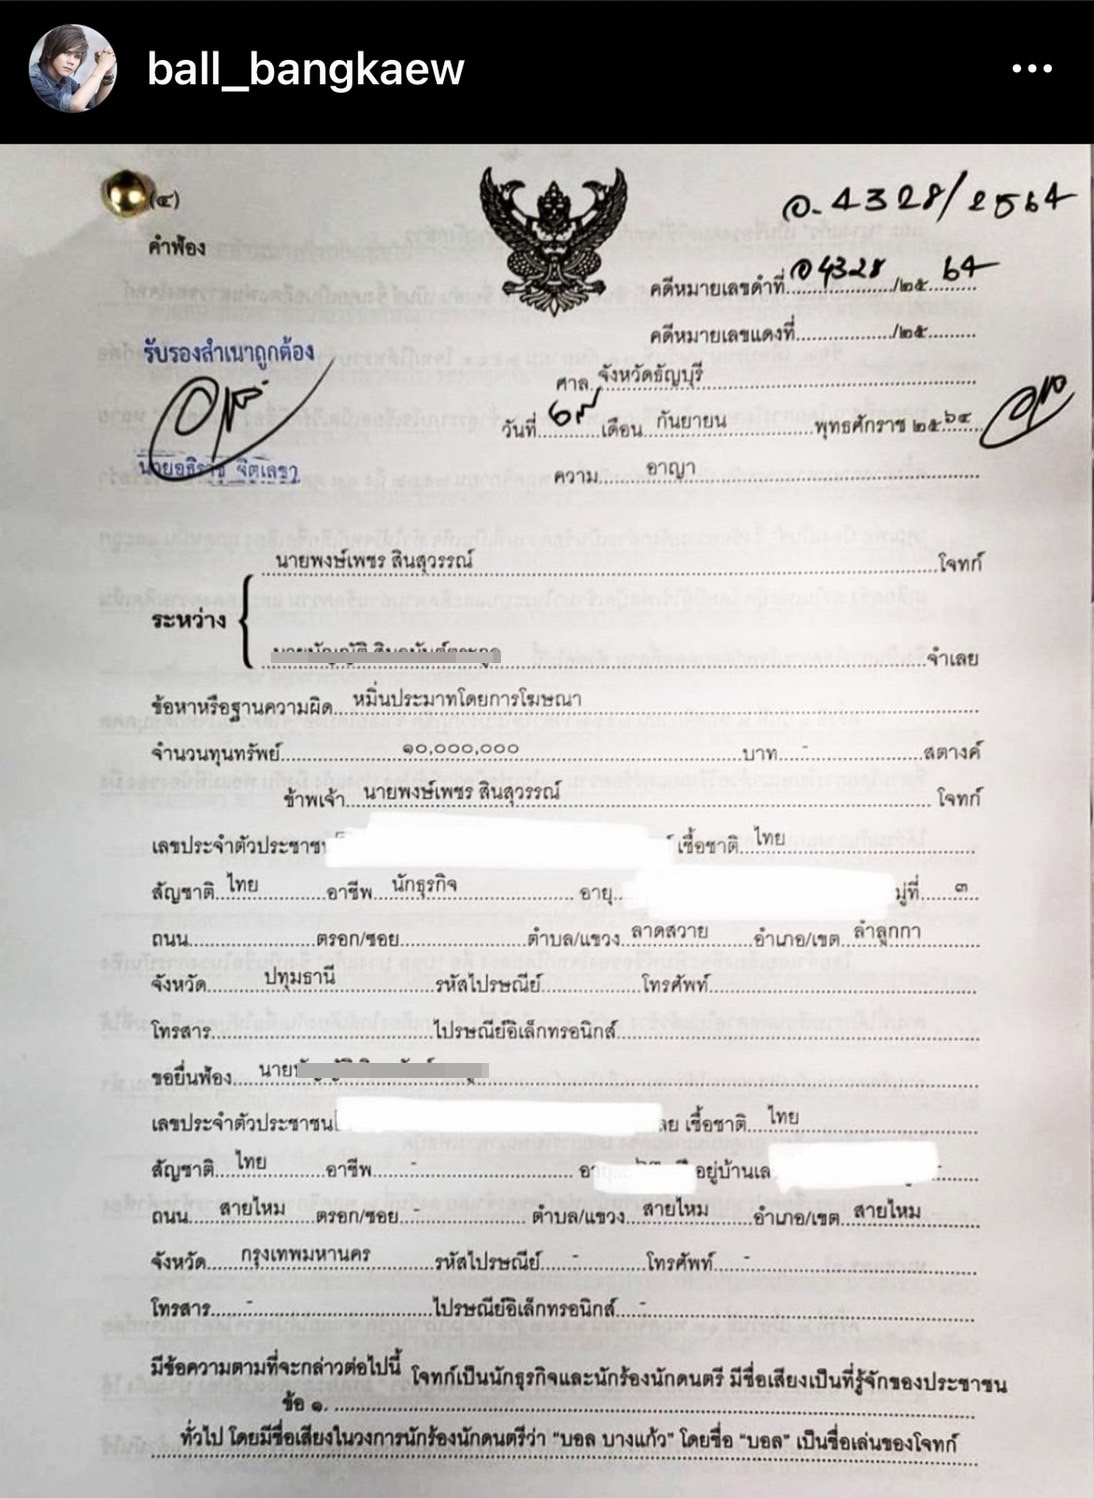 ball_bangkaew
(๔)
อ. 4328/2564
คำฟ้อง
คดีหมายเลขดำที่ อ4328 /๒๕ 64
คดีหมายเลขแดงที่ /๒๕
รับรองสำเนาถูกต้อง
ศาล จังหวัดธัญบุรี
วันที่ เดือน กันยายน พุทธศักราช ๒๕๖๔
นายอธิราช จิตเลขา
ความ อาญา
นายพงษ์เพชร สินสุวรรณ์ โจทก์
ระหว่าง
จำเลย
ข้อหาหรือฐานความผิด หมิ่นประมาทโดยการโฆษณา
จำนวนทุนทรัพย์ ๑๐,๐๐๐,๐๐๐ บาท - สตางค์
ข้าพเจ้า นายพงษ์เพชร สินสุวรรณ์ โจทก์
เลขประจำตัวประชาชน เชื้อชาติ ไทย
สัญชาติ ไทย อาชีพ นักธุรกิจ อายุ หมู่ที่ ๓
ถนน ตรอก/ซอย ตำบล/แขวง ลาดสวาย อำเภอ/เขต ลำลูกกา
จังหวัด ปทุมธานี รหัสไปรษณีย์ โทรศัพท์
โทรสาร ไปรษณีย์อิเล็กทรอนิกส์
ขอยื่นฟ้อง นาย
เลขประจำตัวประชาชน เชื้อชาติ ไทย
สัญชาติ ไทย อาชีพ - อายุ ปี อยู่บ้านเล
ถนน สายไหม ตรอก/ซอย - ตำบล/แขวง สายไหม อำเภอ/เขต สายไหม
จังหวัด กรุงเทพมหานคร รหัสไปรษณีย์ - โทรศัพท์ -
โทรสาร - ไปรษณีย์อิเล็กทรอนิกส์ -
มีข้อความตามที่จะกล่าวต่อไปนี้
ข้อ ๑. โจทก์เป็นนักธุรกิจและนักร้องนักดนตรี มีชื่อเสียงเป็นที่รู้จักของประชาชน
ทั่วไป โดยมีชื่อเสียงในวงการนักร้องนักดนตรีว่า "บอล บางแก้ว" โดยชื่อ "บอล" เป็นชื่อเล่นของโจทก์